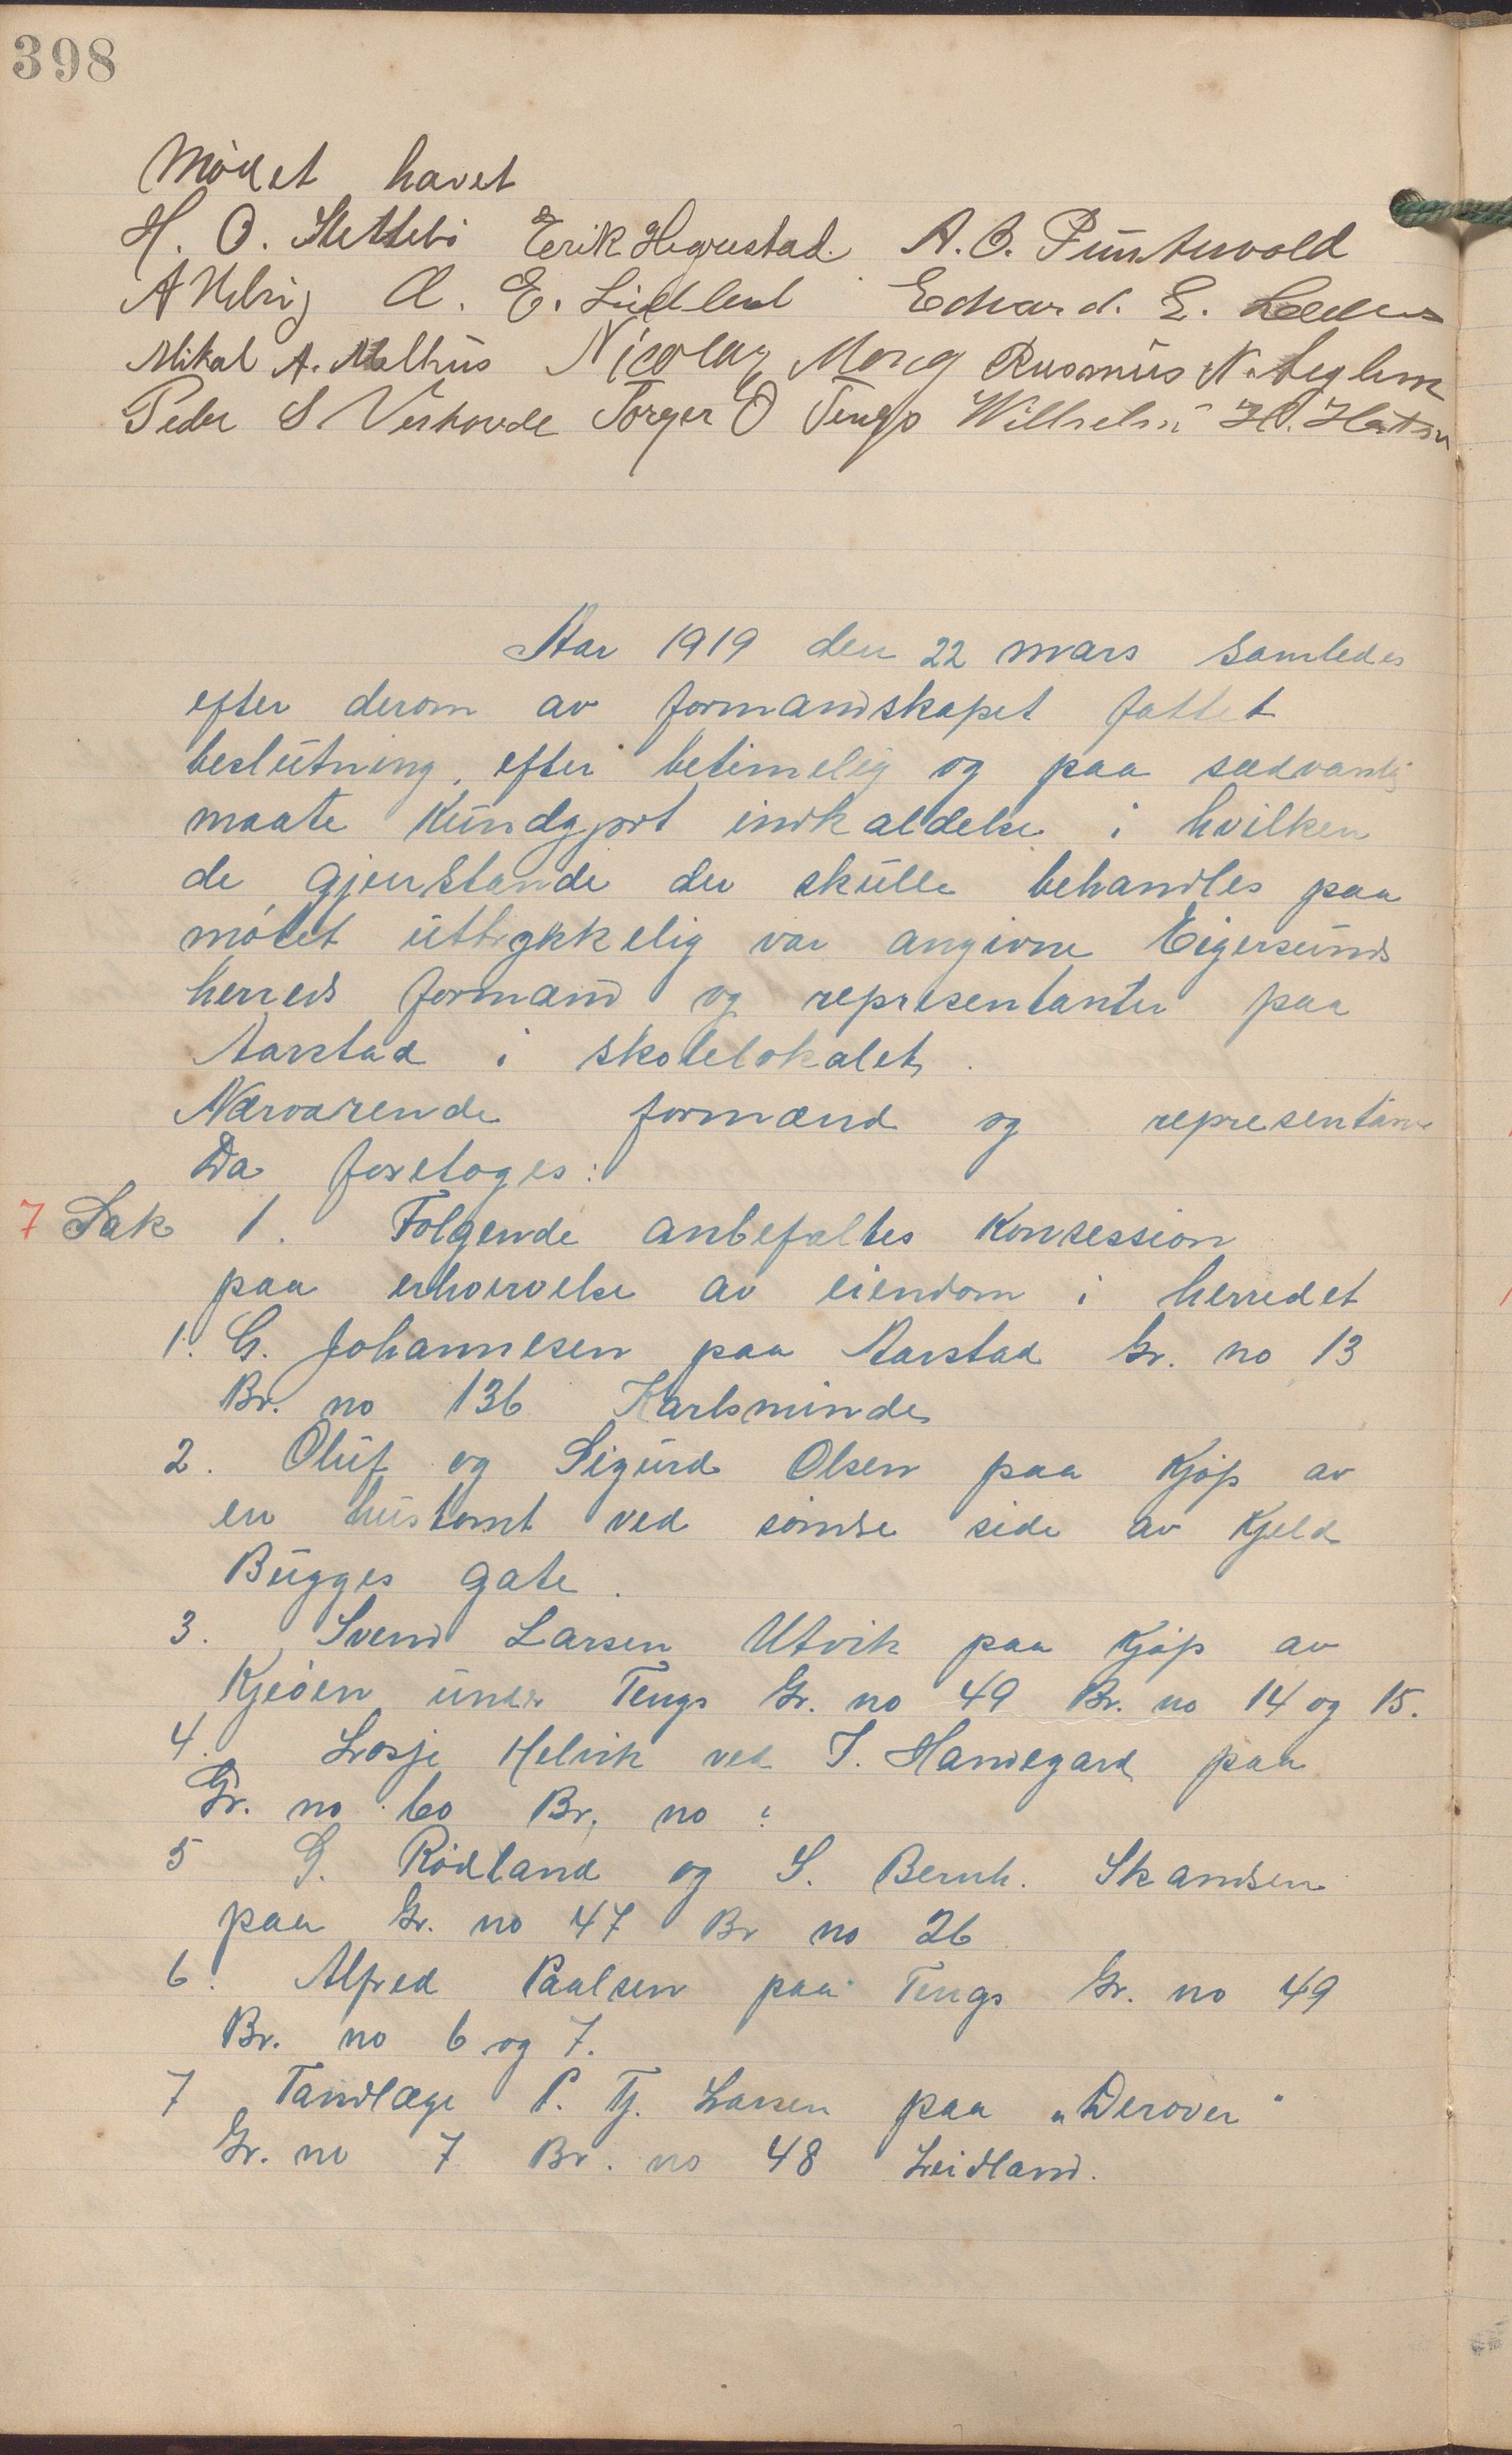 398
Mødet havet
H. O. Slettebö Erik Hegrestad. A. B. Puntervold
A Helvig A. E. Lidland Edvard. E.
Mikal A. Malthus Nicolay Mong Rasmus N. Leglem
Peder S Veshovde Torger O Tengs Wilhelm H.
Aar 1919 den 22 mars samledes
efter derom av formandskapet fattet
beslutning, efter betimelig og paa sædvanlig
maate kundgjort indkaldelse i hvilken
de gjenstande der skulle behandles paa
møtet uttrykkelig var angivne Eigersunds
herreds formænd og representanter paa
Aarstad i skolelokalet.
Nærværende formænd og
Da foretoges:
7 Sak 1. Følgende anbefaltes konsession
paa erhvervelse av eiendom i herredet
1. G. Johannesen paa Aarstad Gr. no 13
Br. no 136 Karlsminde
2. Oluf og Sigurd Olsen paa kjøp av
en hustomt ved søndre side av Kjeld
Bugges gate.
3. Svend Larsen Utvik paa kjøp av
Kjeøen under Tengs Gr. no 49 Br. no 14 og 15.
4. Losje Helvik ved J. Handegard paa
Gr. no 60 Br, no :
5 G. Rødland og S. Bernh. Skandsen
paa Gr. no 47 Br no 26
6. Alfred Paalsen paa Tengs Gr. no 49
Br. no 6 og 7.
7 Tandlæge P. Tj. Larsen paa „Derover"
Gr. no 7 Br. no 48 Leidland.